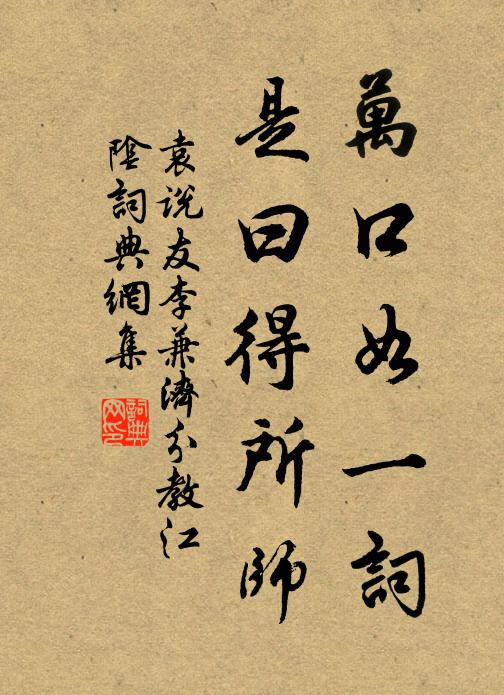 萬口如一詞
是曰得所師
袁説友李兼濟分教江
陰詞典網集
詞典
网印